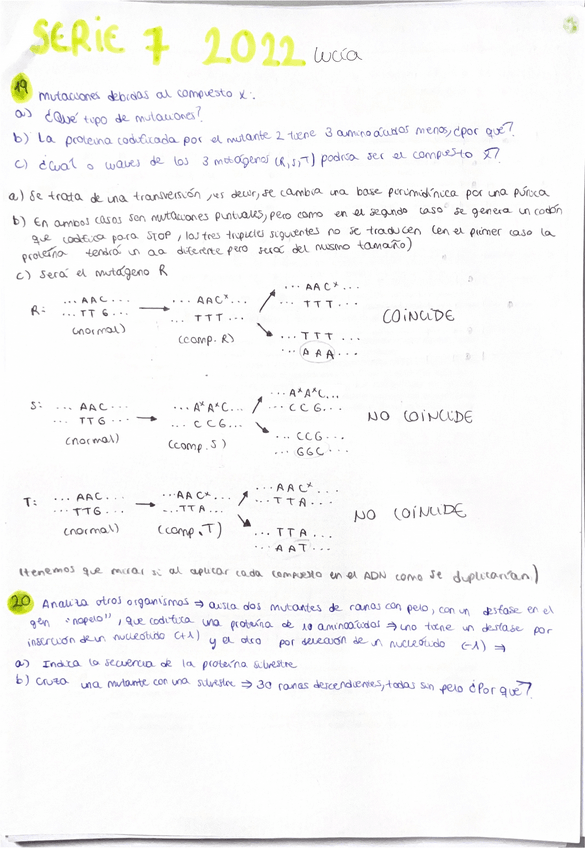 SERIE 7 2022 Lucía
19 Mutaciones debidas al compuesto X:
a) ¿Qué tipo de mutaciones?
b) La proteína codificada por el mutante 2 tiene 3 aminoácidos menos, ¿por qué?
c) ¿Cuál o cuáles de los 3 mutágenos (R,S,T) podría ser el compuesto X?
a) Se trata de una transversión, es decir, se cambia una base pirimidínica por una púrica
b) En ambos casos son mutaciones puntuales, pero como en el segundo caso se genera un codón
que codifica para STOP, los tres tripletes siguientes no se traducen (en el primer caso la
proteína tendrá un aa diferente pero será del mismo tamaño)
c) Será el mutágeno R
R: ... AAC ... ... AACx ... ... AACx ...
... TTG ... ... TTT ... ... TTT ...
(normal) (comp. R) ... TTT ...
... AAA ...
COINCIDE
S: ... AAC ... ... AxAxC ... ... AxAxC ...
... TTG ... ... CCG ... ... CCG ...
(normal) (comp. S) ... CCG ...
... GGC ...
NO COINCIDE
T: ... AAC ... ... AACx ... ... AACx ...
... TTG ... ... TTA ... ... TTA ...
(normal) (comp. T) ... TTA ...
... AAT ...
NO COINCIDE
(tenemos que mirar si al aplicar cada compuesto en el ADN como se duplicarían)
20 Analiza otros organismos ⇒ aisla dos mutantes de ranas con pelo, con un desfase en el
gen "nopelo", que codifica una proteína de 10 aminoácidos ⇒ uno tiene un desfase por
inserción de un nucleótido (+1) y el otro por selección de un nucleótido (-1) ⇒
a) Indica la secuencia de la proteína silvestre
b) Cruza una mutante con una silvestre ⇒ 30 ranas descendientes, todas sin pelo ¿Por qué?